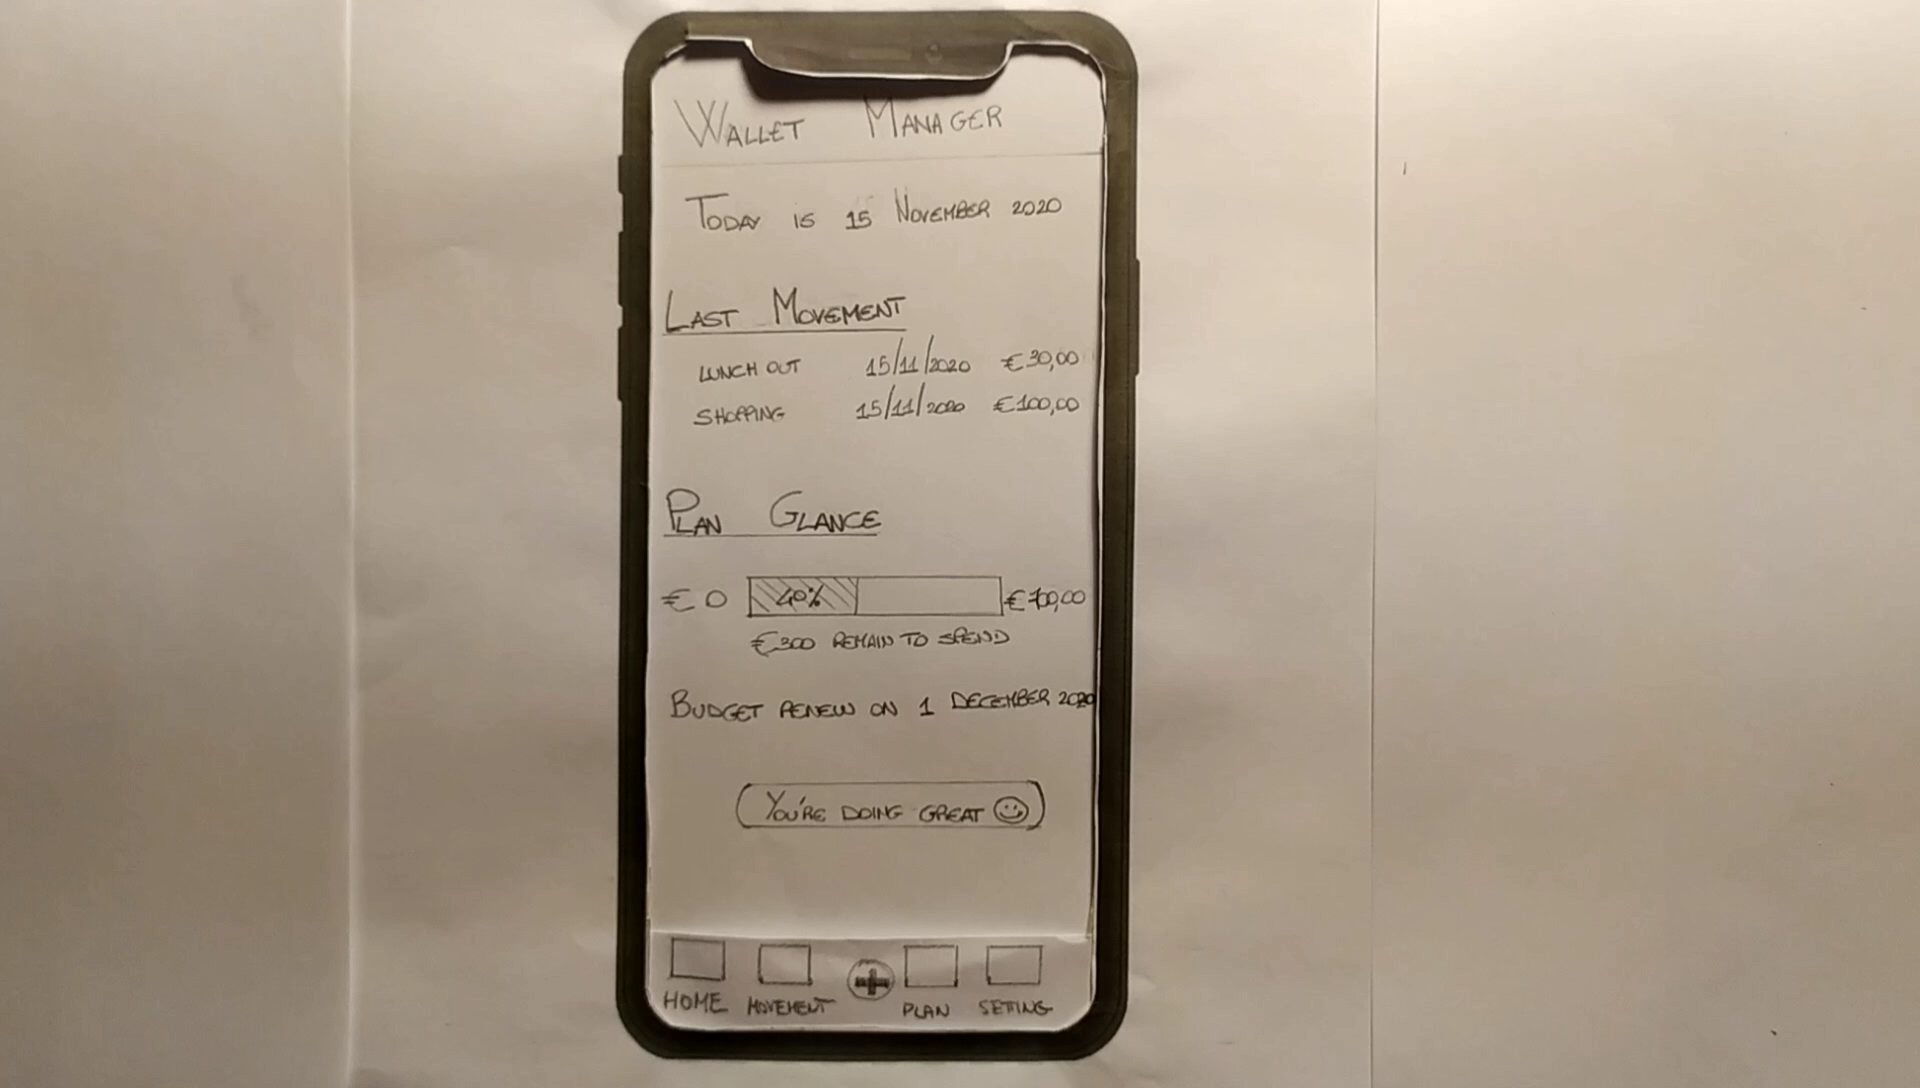 Wallet Manager
Today is 15 November 2020
Last Movement
Lunch out 15/11/2020 €30,00
Shopping 15/11/2020 €100,00
Plan Glance
€ 0 40%
€300 remain to spend
Budget renew on 1 December 2020
You're doing great
Home Movement Plan Setting